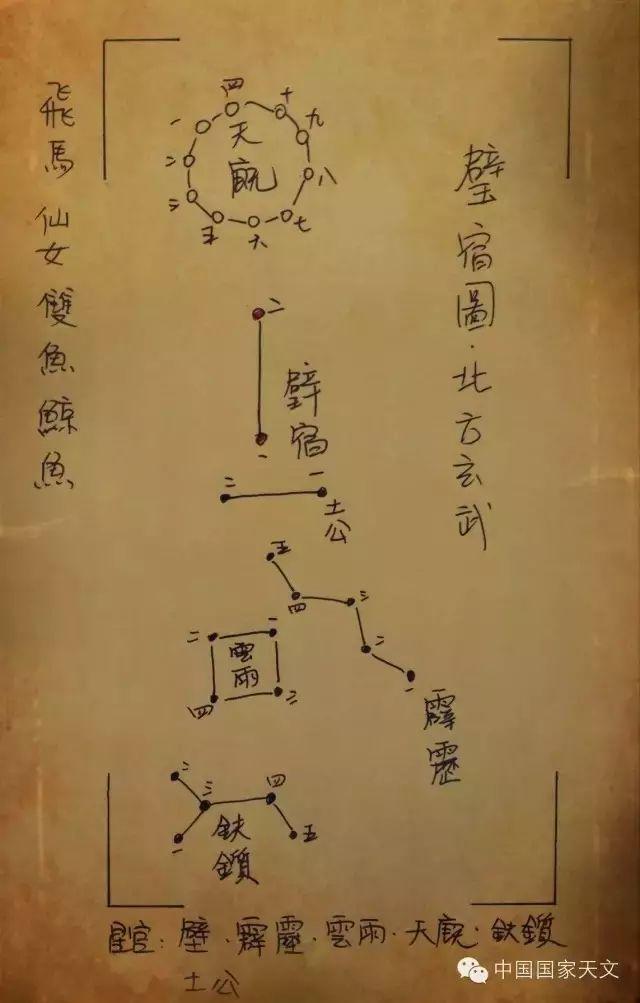 璧宿圖·北方玄武
飛馬 仙女 雙魚 鯨魚
四
十
一
九
天廐
二
八
三
七
五
六
二
壁宿
一
二
一
土公
五
四
三
二
一
霹靂
二
一
雲雨
四
二
二
三
四
一
五
鈇鑕
星官：壁·霹靂·雲雨·天廐·鈇鑕
土公
中国国家天文